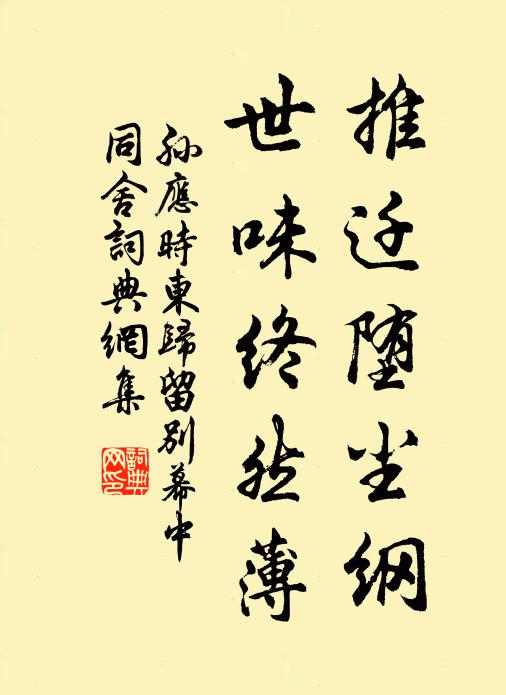 推迁堕尘纲
世味终然薄
孙應時東歸留别幕中
同舍詞典網集
詞典网印